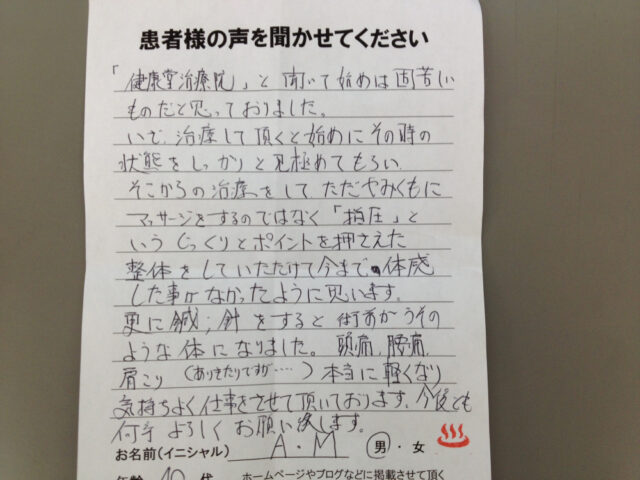 患者様の声を聞かせてください
「健康堂治療院」と聞いて始めは固苦しい
ものだと思っておりました。
いざ治療して頂くと始めにその時の
状態をしっかりと見極めてもらい
そこからの治療をして ただやみくもに
マッサージをするのではなく「指圧」と
いうじっくりとポイントを押さえた
整体をしていただけて今まで体感
した事がなかったように思います。
更に鍼;針をすると
ような体になりました。頭痛,腰痛,
肩こり(ありきたりですが……)本当に軽くなり
気持ちよく仕事をさせて頂いております。今後とも
何卒よろしくお願い致します。
お名前(イニシャル) A・M 男・女
年齢 40 代 ホームページやブログなどに掲載させて頂く